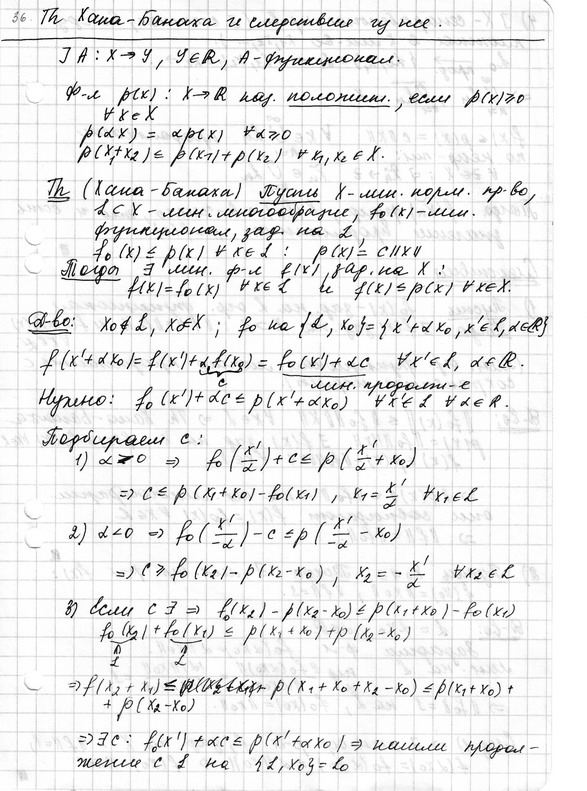 36 Th Хана-Банаха и следствие из нее.
] A : X → Y, Y ∈ ℝ, A - функционал.
Ф-л p(x) : X → ℝ наз. положит., если p(x) ≥ 0
∀ x ∈ X
p(αx) = αp(x) ∀ α ≥ 0
p(x₁+x₂) ≤ p(x₁) + p(x₂) ∀ x₁, x₂ ∈ X.
Th (Хана-Банаха) Пусть X - лин. норм. пр-во,
L ⊂ X - лин. многообразие, f₀(x) - лин.
функционал, зад. на L
f₀(x) ≤ p(x) ∀ x ∈ L : p(x) = c||x||
Тогда ∃ лин. ф-л f(x), зад. на X :
f(x) = f₀(x) ∀ x ∈ L и f(x) ≤ p(x) ∀ x ∈ X.
Д-во: x₀ ∉ L, x₀ ∈ X ; f₀ на {L, x₀} = {x' + αx₀, x' ∈ L, α ∈ ℝ}
f(x' + αx₀) = f(x') + α f(x₀) = f₀(x') + αc ∀ x' ∈ L, α ∈ ℝ.
c лин. продолж-е
Нужно: f₀(x') + αc ≤ p(x' + αx₀) ∀ x' ∈ L ∀ α ∈ ℝ.
Подбираем c :
1) α > 0 ⇒ f₀(x'/α) + c ≤ p(x'/α + x₀)
⇒ c ≤ p(x₁ + x₀) - f₀(x₁), x₁ = x'/α ∀ x₁ ∈ L
2) α < 0 ⇒ f₀(x'/-α) - c ≤ p(x'/-α - x₀)
⇒ c ≥ f₀(x₂) - p(x₂ - x₀), x₂ = - x'/α ∀ x₂ ∈ L
3) Если c ∃ ⇒ f₀(x₂) - p(x₂ - x₀) ≤ p(x₁ + x₀) - f₀(x₁)
f₀(x₂) + f₀(x₁) ≤ p(x₁ + x₀) + p(x₂ - x₀)
L L
⇒ f₀(x₂ + x₁) ≤ p(x₁ + x₀ + x₂ - x₀) ≤ p(x₁ + x₀) +
+ p(x₂ - x₀)
⇒ ∃ c : f₀(x') + αc ≤ p(x' + αx₀) ⇒ нашли продол-
жение с L на {L, x₀} = L₀